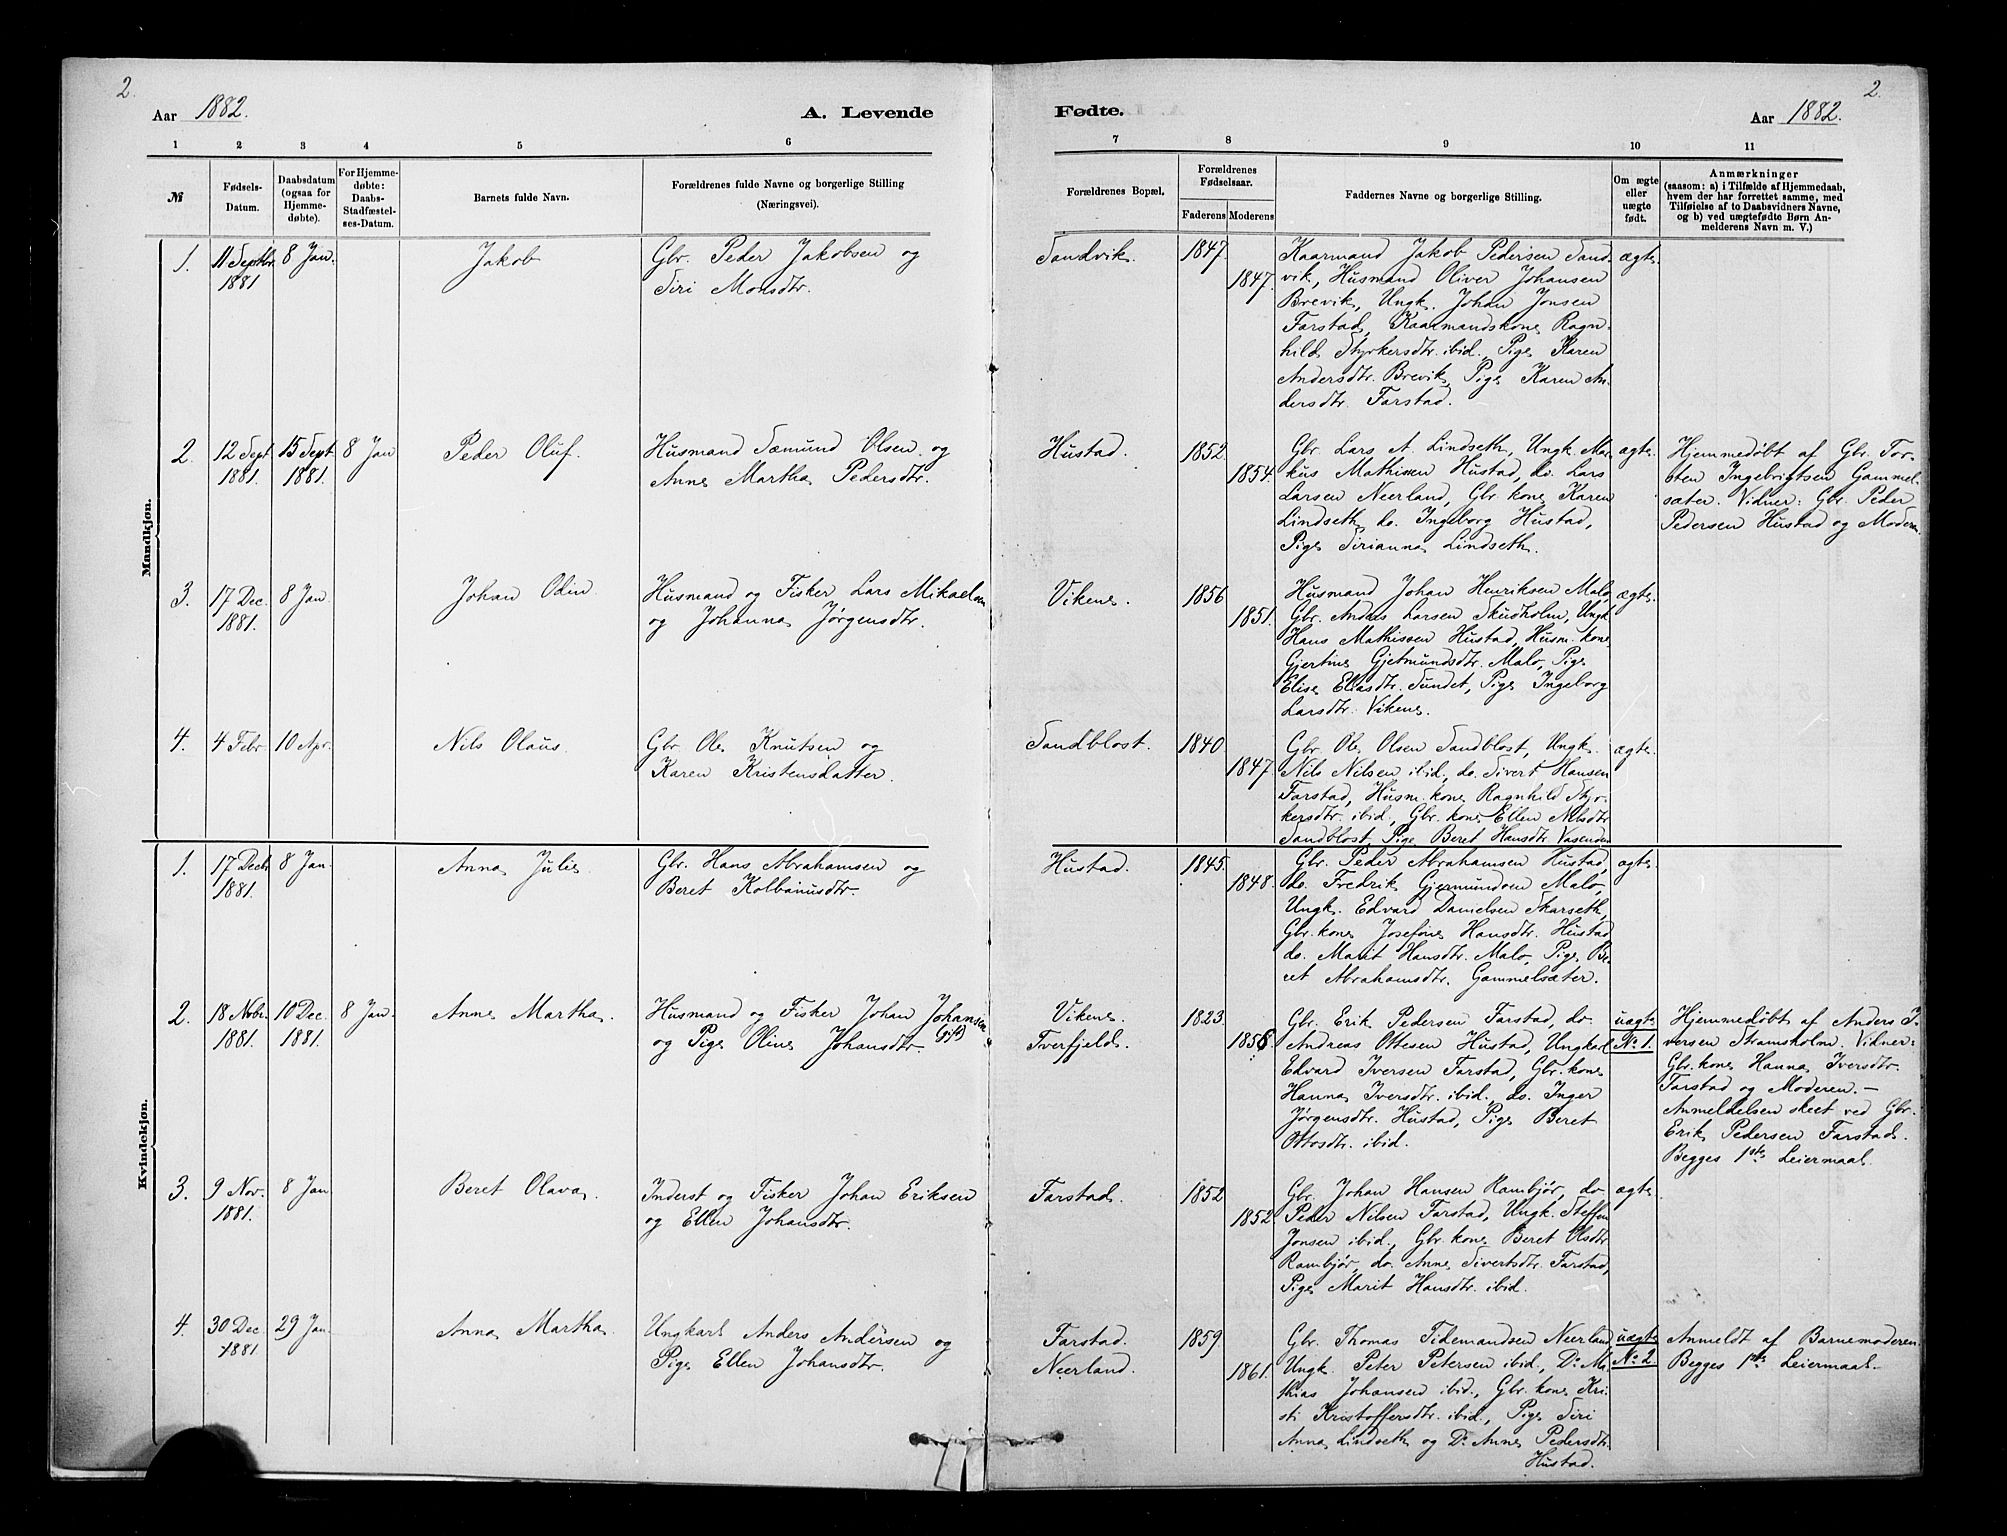 2.
Aar 1882.
A. Levende
1 2 3 4 5 6
№
Fødsels-Datum.
Daabsdatum (ogsaa for Hjemme-døbte).
For Hjemme-døbte: Daabs-Stadfæstel-ses-Datum.
Barnets fulde Navn.
Forældrenes fulde Navne og borgerlige Stilling
(Næringsvei).
Mandkjøn.
1. 11 Septbr. 8 Jan. Jakob Gbr. Peder Jakobsen og
1881 Siri Monsdtr.
2. 12 Sept 15 Sept 8 Jan Peder Oluf. Husmand Sæmund Olsen og
1881. 1881. Anne Martha Pedersdtr.
3. 17 Dec. 8 Jan. Johan Odin. Husmand og Fisker Lars Mikaelsen
1881. og Johanna Jørgensdtr.
4. 4 Febr 10 Apr. Nils Olaus. Gbr. Ole Knutsen og
Karen Kristensdatter.
Kvindekjøn.
1. 17 Decbr 8 Jan. Anna Julie. Gbr. Hans Abrahamsen og
1881. Beret Kolbanusdtr.
2. 18 Novbr. 10 Dec. 8 Jan. Anne Martha. Husmand og Fisker Johan Johansen
1881. 1881. og Pige Oline Johansdtr. (gift)
3. 9 Nov. 8 Jan Beret Olava. Inderst og Fisker Johan Eriksen
1881. og Ellen Johansdtr.
4. 30 Dec. 29 Jan. Anna Martha. Ungkarl Anders Andersen og
1881 Pige Ellen Johansdtr.
2.
Fødte.
Aar 1882.
7 8 9 10 11
Forældrenes Bopæl.
Forældrenes Fødselsaar.
Faderens Moderens
Faddernes Navne og borgerlige Stilling.
Om ægte eller uægte født.
Anmærkninger
(saasom: a) i Tilfælde af Hjemmedaab,
hvem der har forrettet samme, med
Tilføielse af to Daabsvidners Navne,
og b) ved uægtefødte Børn An-
melderens Navn m. V.)
Sandvik. 1847. Kaarmand Jakob Pedersen Sand- ægte.
1847. vik, Husmand Oliver Johansen
Brevik, Ungk. Johan Jonsen
Farstad, Kaarmandskone Ragn-
hild Styrkersdtr. ibid., Pige Karen
Andersdtr. Brevik, Pige Karen An-
dersdtr. Farstad.
Hustad. 1852. Gbr. Lars A. Lindseth, Ungk Mar- ægte. Hjemmedøbt af Gbr. Tor-
1854. kus Mathisen Hustad, do. Lars sten Ingebrigtsen Gammel-
Larsen Neerland, Gbr. kone Karen sæter. Vidner: Gbr. Peder
Lindseth, do. Ingeborg Hustad, Pedersen Hustad og Moderen.
Pige Sirianna Lindseth.
Vikene. 1856 Husmand Johan Henriksen Malo, ægte.
1851. Gbr. Andres Larsen Skudholm, Ungk
Hans Mathissen Hustad, Husm. kone
Gjertine Gjetmundsdtr. Malo, Pige
Elise Eliasdtr. Sundet, Pige Ingeborg
Larsdtr. Vikene.
Sandblost. 1840. Gbr. Ole Olsen Sandblost, Ungk. ægte.
1847. Nils Nilsen ibid., do. Sivert Hansen
Farstad, Husm. kone Ragnhild Styr-
kersdtr. ibid., Gbr. kone Ellen Nilsdtr
Sandblost, Pige Beret Hansdtr Vasenden
Hustad. 1845. Gbr. Peder Abrahamsen Hustad, ægte.
1848. do. Fredrik Gjermundsen Malo,
Ungk. Edvard Danielsen Skarseth,
Gbr. kone Josefine Hansdtr. Hustad
do. Marit Hansdtr. Malo, Pige Be-
ret Abrahamsdtr. Gammelsæter.
Vikene. 1823. Gbr. Erik Pedersen Farstad, do. uægte Hjemmedøbt af Anders I-
Tverfjeld. 1856. Andreas Ottesen Hustad, Ungkarl No 1. versen Stramsholm. Vidner:
Edvard Iversen Farstad, Gbr. kone Gbr. kone Hanna Iversdtr.
Hanna Iversdtr. ibid. do. Inger Farstad og Moderen. –
Jørgensdtr. Hustad, Pige Beret Anmeldelsen skeet ved Gbr.
Ottosdtr. ibid. Erik Pedersen Farstad.
Begges 1ste Leiermaal.
Farstad. 1852 Gbr. Johan Hansen Rambjør, do ægte.
1852 Peder Nilsen Farstad, Ungk. Steffen
Jonsen ibid., Gbr. kone Beret Olsdtr
Rambjør, do. Anne Sivertsdtr. Farstad,
Pige Marit Hansdtr. ibid.
Farstad. 1859. Gbr. Thomas Tidemandsen Neerland uægte Anmeldt af Barnemoderen.
Neerland. 1861. Ungk. Peter Petersen ibid., Do Ma- No 2. Begges 1ste Leiermaal.
thias Johansen ibid., Gbr. kone Kri-
sti Kristoffersdtr. ibid., Pige Siri
Anna Lindseth og Do Anne Pedersdtr.
Hustad.